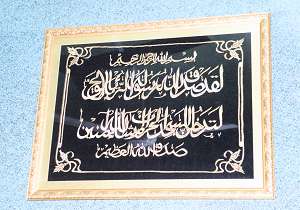 بسم الله الرحمن الرحيم
لقد صدق الله رسوله الرؤيا بالحق
لتدخلن المسجد الحرام إن شاء الله آمنين
صدق الله العظيم